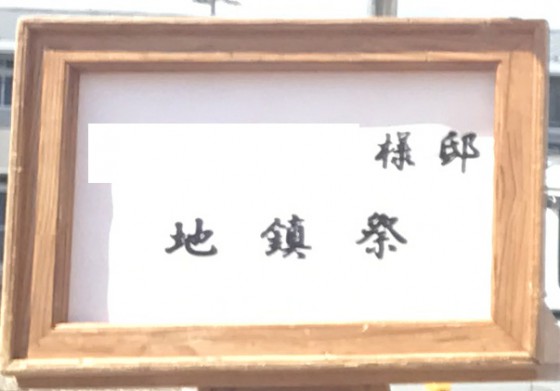 様邸
地鎮祭